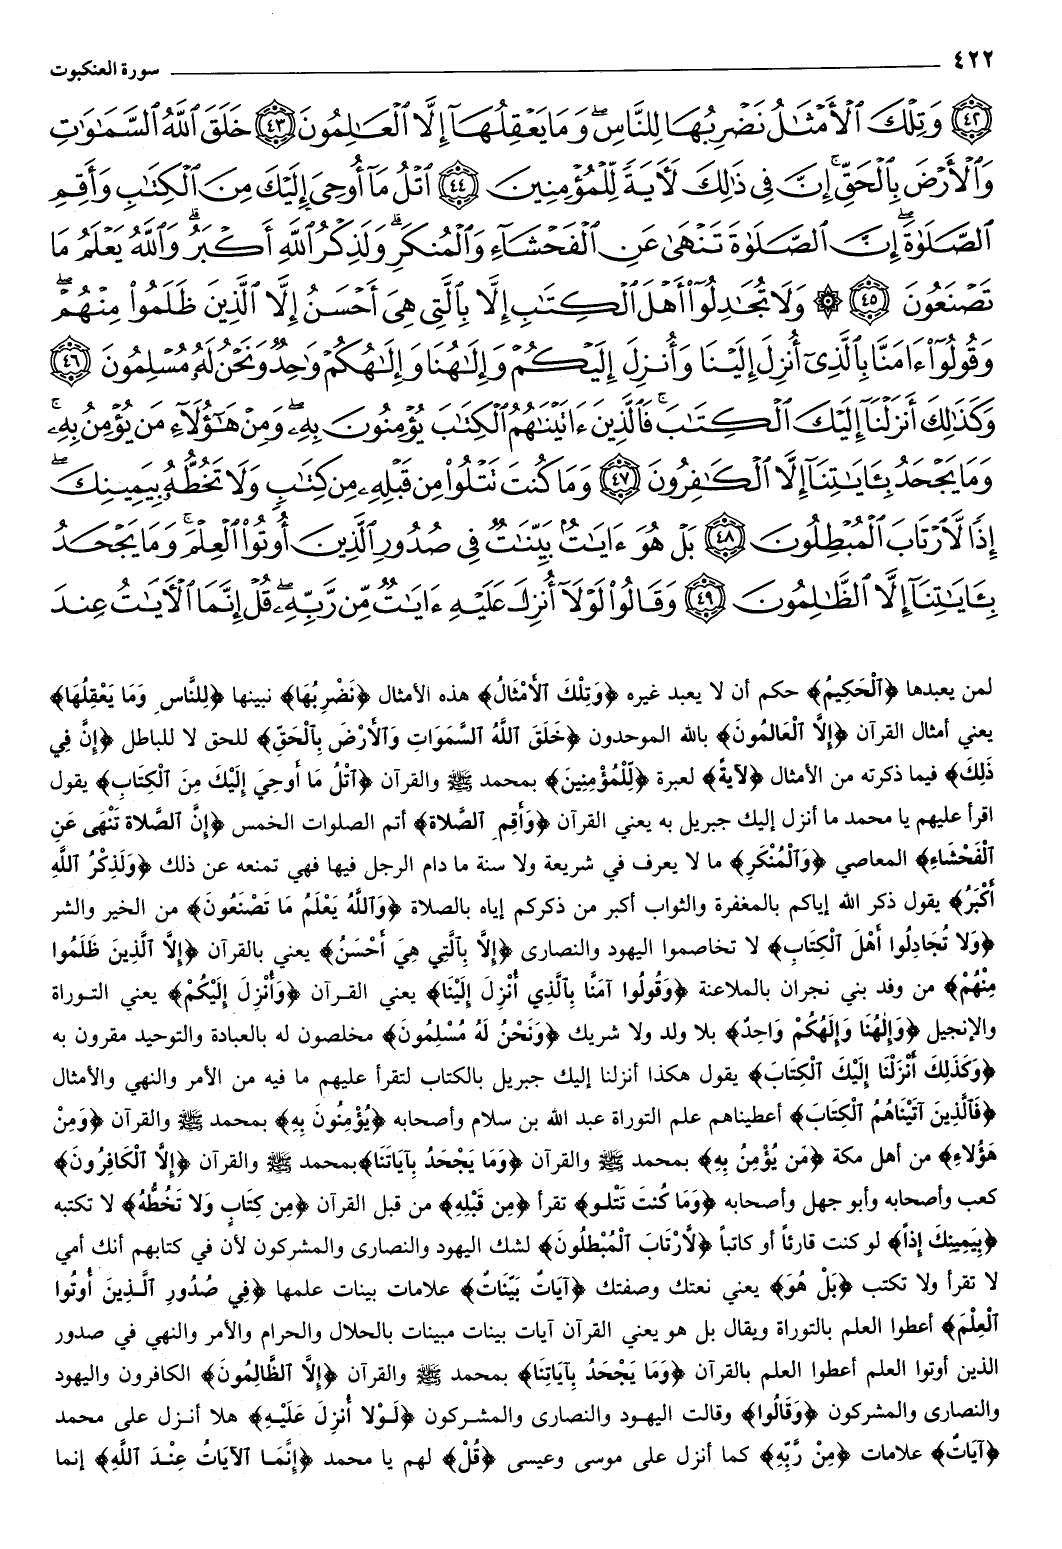 ٤٢٢ سورة العنكبوت
٤٢ وَتِلْكَ ٱلْأَمْثَٰلُ نَضْرِبُهَا لِلنَّاسِ ۖ وَمَا يَعْقِلُهَآ إِلَّا ٱلْعَٰلِمُونَ ٤٣ خَلَقَ ٱللَّهُ ٱلسَّمَٰوَٰتِ
وَٱلْأَرْضَ بِٱلْحَقِّ ۚ إِنَّ فِى ذَٰلِكَ لَءَايَةً لِّلْمُؤْمِنِينَ ٤٤ ٱتْلُ مَآ أُوحِىَ إِلَيْكَ مِنَ ٱلْكِتَٰبِ وَأَقِمِ
ٱلصَّلَوٰةَ ۖ إِنَّ ٱلصَّلَوٰةَ تَنْهَىٰ عَنِ ٱلْفَحْشَآءِ وَٱلْمُنكَرِ ۗ وَلَذِكْرُ ٱللَّهِ أَكْبَرُ ۗ وَٱللَّهُ يَعْلَمُ مَا
تَصْنَعُونَ ٤٥ ۞ وَلَا تُجَٰدِلُوٓا۟ أَهْلَ ٱلْكِتَٰبِ إِلَّا بِٱلَّتِى هِىَ أَحْسَنُ إِلَّا ٱلَّذِينَ ظَلَمُوا۟ مِنْهُمْ ۖ
وَقُولُوٓا۟ ءَامَنَّا بِٱلَّذِىٓ أُنزِلَ إِلَيْنَا وَأُنزِلَ إِلَيْكُمْ وَإِلَٰهُنَا وَإِلَٰهُكُمْ وَٰحِدٌ وَنَحْنُ لَهُۥ مُسْلِمُونَ ٤٦
وَكَذَٰلِكَ أَنزَلْنَآ إِلَيْكَ ٱلْكِتَٰبَ ۚ فَٱلَّذِينَ ءَاتَيْنَٰهُمُ ٱلْكِتَٰبَ يُؤْمِنُونَ بِهِۦ ۖ وَمِنْ هَٰٓؤُلَآءِ مَن يُؤْمِنُ بِهِۦ ۚ
وَمَا يَجْحَدُ بِـَٔايَٰتِنَآ إِلَّا ٱلْكَٰفِرُونَ ٤٧ وَمَا كُنتَ تَتْلُوا۟ مِن قَبْلِهِۦ مِن كِتَٰبٍ وَلَا تَخُطُّهُۥ بِيَمِينِكَ ۖ
إِذًا لَّٱرْتَابَ ٱلْمُبْطِلُونَ ٤٨ بَلْ هُوَ ءَايَٰتٌۢ بَيِّنَٰتٌ فِى صُدُورِ ٱلَّذِينَ أُوتُوا۟ ٱلْعِلْمَ ۚ وَمَا يَجْحَدُ
بِـَٔايَٰتِنَآ إِلَّا ٱلظَّٰلِمُونَ ٤٩ وَقَالُوا۟ لَوْلَآ أُنزِلَ عَلَيْهِ ءَايَٰتٌ مِّن رَّبِّهِۦ ۖ قُلْ إِنَّمَا ٱلْءَايَٰتُ عِندَ
لمن يعبدها ﴿ٱلْحَكِيمُ﴾ حكم أن لا يعبد غيره ﴿وَتِلْكَ ٱلْأَمْثَالُ﴾ هذه الأمثال ﴿نَضْرِبُهَا﴾ نبينها ﴿لِلنَّاسِ وَمَا يَعْقِلُهَا﴾
يعني أمثال القرآن ﴿إِلَّا ٱلْعَالِمُونَ﴾ بالله الموحدون ﴿خَلَقَ ٱللَّهُ ٱلسَّمَوَاتِ وَٱلْأَرْضَ بِٱلْحَقِّ﴾ للحق لا للباطل ﴿إِنَّ فِي
ذَلِكَ﴾ فيما ذكرته من الأمثال ﴿لآيَةً﴾ لعبرة ﴿لِّلْمُؤْمِنِينَ﴾ بمحمد ﷺ والقرآن ﴿ٱتْلُ مَا أُوحِيَ إِلَيْكَ مِنَ ٱلْكِتَابِ﴾ يقول
اقرأ عليهم يا محمد ما أنزل إليك جبريل به يعني القرآن ﴿وَأَقِمِ ٱلصَّلاةَ﴾ أتم الصلوات الخمس ﴿إِنَّ ٱلصَّلاةَ تَنْهَى عَنِ
ٱلْفَحْشَاءِ﴾ المعاصي ﴿وَٱلْمُنْكَرِ﴾ ما لا يعرف في شريعة ولا سنة ما دام الرجل فيها فهي تمنعه عن ذلك ﴿وَلَذِكْرُ ٱللَّهِ
أَكْبَرُ﴾ يقول ذكر الله إياكم بالمغفرة والثواب أكبر من ذكركم إياه بالصلاة ﴿وَٱللَّهُ يَعْلَمُ مَا تَصْنَعُونَ﴾ من الخير والشر
﴿وَلا تُجَادِلُوا أَهْلَ ٱلْكِتَابِ﴾ لا تخاصموا اليهود والنصارى ﴿إِلَّا بِٱلَّتِي هِيَ أَحْسَنُ﴾ يعني بالقرآن ﴿إِلَّا ٱلَّذِينَ ظَلَمُوا
مِنْهُمْ﴾ من وفد بني نجران بالملاعنة ﴿وَقُولُوا آمَنَّا بِٱلَّذِي أُنْزِلَ إِلَيْنَا﴾ يعني القرآن ﴿وَأُنْزِلَ إِلَيْكُمْ﴾ يعني التوراة
والإنجيل ﴿وَإِلٰهُنَا وَإِلَهُكُمْ وَاحِدٌ﴾ بلا ولد ولا شريك ﴿وَنَحْنُ لَهُ مُسْلِمُونَ﴾ مخلصون له بالعبادة والتوحيد مقرون به
﴿وَكَذَلِكَ أَنْزَلْنَا إِلَيْكَ ٱلْكِتَابَ﴾ يقول هكذا أنزلنا إليك جبريل بالكتاب لتقرأ عليهم ما فيه من الأمر والنهي والأمثال
﴿فَٱلَّذِينَ آتَيْنَاهُمُ ٱلْكِتَابَ﴾ أعطيناهم علم التوراة عبد الله بن سلام وأصحابه ﴿يُؤْمِنُونَ بِهِ﴾ بمحمد ﷺ والقرآن ﴿وَمِنْ
هَؤُلاءِ﴾ من أهل مكة ﴿مَن يُؤْمِنُ بِهِ﴾ بمحمد ﷺ والقرآن ﴿وَمَا يَجْحَدُ بِآيَاتَنَا﴾بمحمد ﷺ والقرآن ﴿إِلَّا ٱلْكَافِرُونَ﴾
كعب وأصحابه وأبو جهل وأصحابه ﴿وَمَا كُنتَ تَتْلو﴾ تقرأ ﴿مِن قَبْلِهِ﴾ من قبل القرآن ﴿مِن كِتَابٍ وَلا تَخُطُّهُ﴾ لا تكتبه
﴿بِيَمِينِكَ إِذاً﴾ لو كنت قارئاً أو كاتباً ﴿لأَرْتَابَ ٱلْمُبْطِلُونَ﴾ لشك اليهود والنصارى والمشركون لأن في كتابهم أنك أمي
لا تقرأ ولا تكتب ﴿بَلْ هُوَ﴾ يعني نعتك وصفتك ﴿آيَاتٌ بَيِّنَاتٌ﴾ علامات بينات علمها ﴿فِي صُدُورِ ٱلَّذِينَ أُوتُوا
ٱلْعِلْمَ﴾ أعطوا العلم بالتوراة ويقال بل هو يعني القرآن آيات بينات مبينات بالحلال والحرام والأمر والنهي في صدور
الذين أوتوا العلم أعطوا العلم بالقرآن ﴿وَمَا يَجْحَدُ بِآيَاتِنَا﴾ بمحمد ﷺ والقرآن ﴿إِلَّا ٱلظَّالِمُونَ﴾ الكافرون واليهود
والنصارى والمشركون ﴿وَقَالُوا﴾ وقالت اليهود والنصارى والمشركون ﴿لَوْلا أُنزِلَ عَلَيْهِ﴾ هلا أنزل على محمد
﴿آيَاتٌ﴾ علامات ﴿مِنْ رَّبِّهِ﴾ كما أنزل على موسى وعيسى ﴿قُلْ﴾ لهم يا محمد ﴿إِنَّمَا ٱلآيَاتُ عِنْدَ ٱللَّهِ﴾ إنما